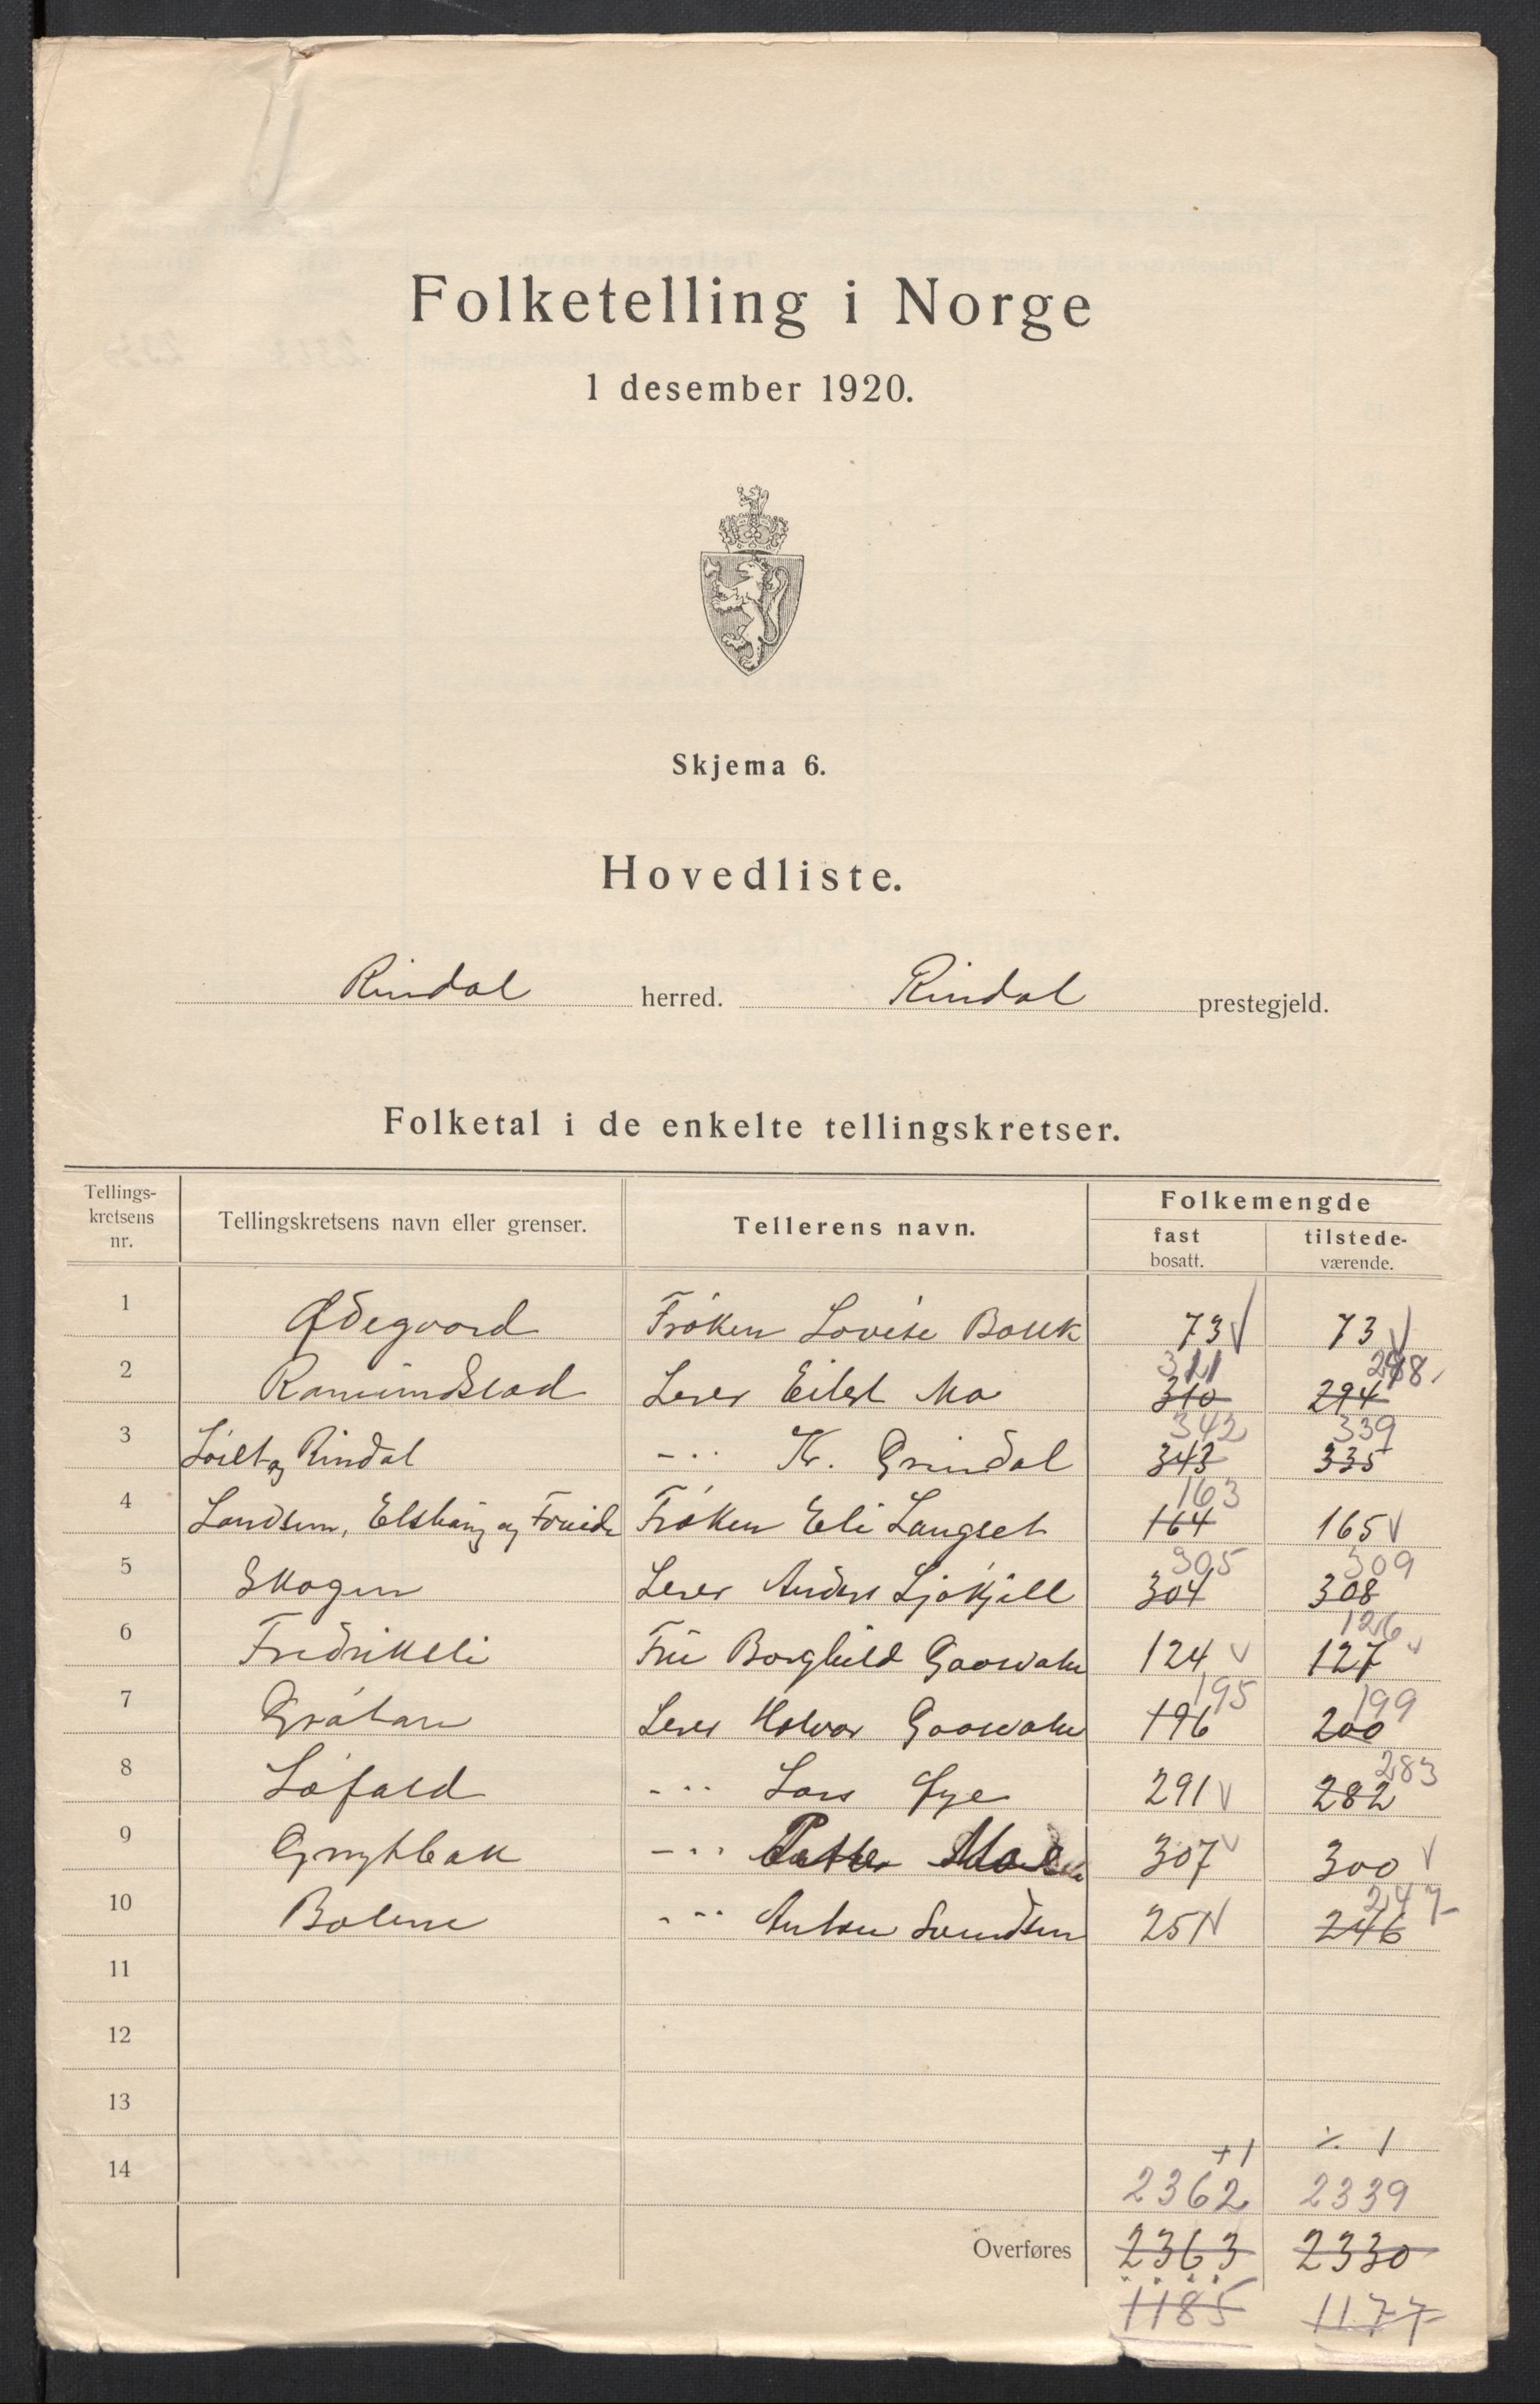 Folketelling i Norge
1 desember 1920.
Skjema 6.
Hovedliste.
Rindal herred. Rindal prestegjeld.
Folketal i de enkelte tellingskretser.
Tellings-kretsens nr. Tellingskretsens navn eller grenser. Tellerens navn. Folkemengde
fast bosatt. tilstede-værende.
1 Ødegaard Frøken Lovise Bolik 73 73
311 298
2 Romundstad Lærer Eilert Mo 310 294
342 339
3 Løilt og Rindal -"- Kr. Grindal 343 335
163
4 Landsem, Elshaug og Frøken Eli Langset 164 165
305 309
5 Skogen Lærer Anders Ljøkjell 304 308
126
6 Fredrikeli Fru Borghild Gaasvatn 124 127
195 199
7 Gråhau Lærer Halvor Gaasvatn 196 200
283
8 Løfald -"- Lars Øye 291 282
9 Grytbak -"- Petter 307 300
247
10 Bolme -"- Anton Svendsen 251 246
11
12
13
+1 ⁒ 1
14 2362 2339
Overføres 2363 2330
1185 1177